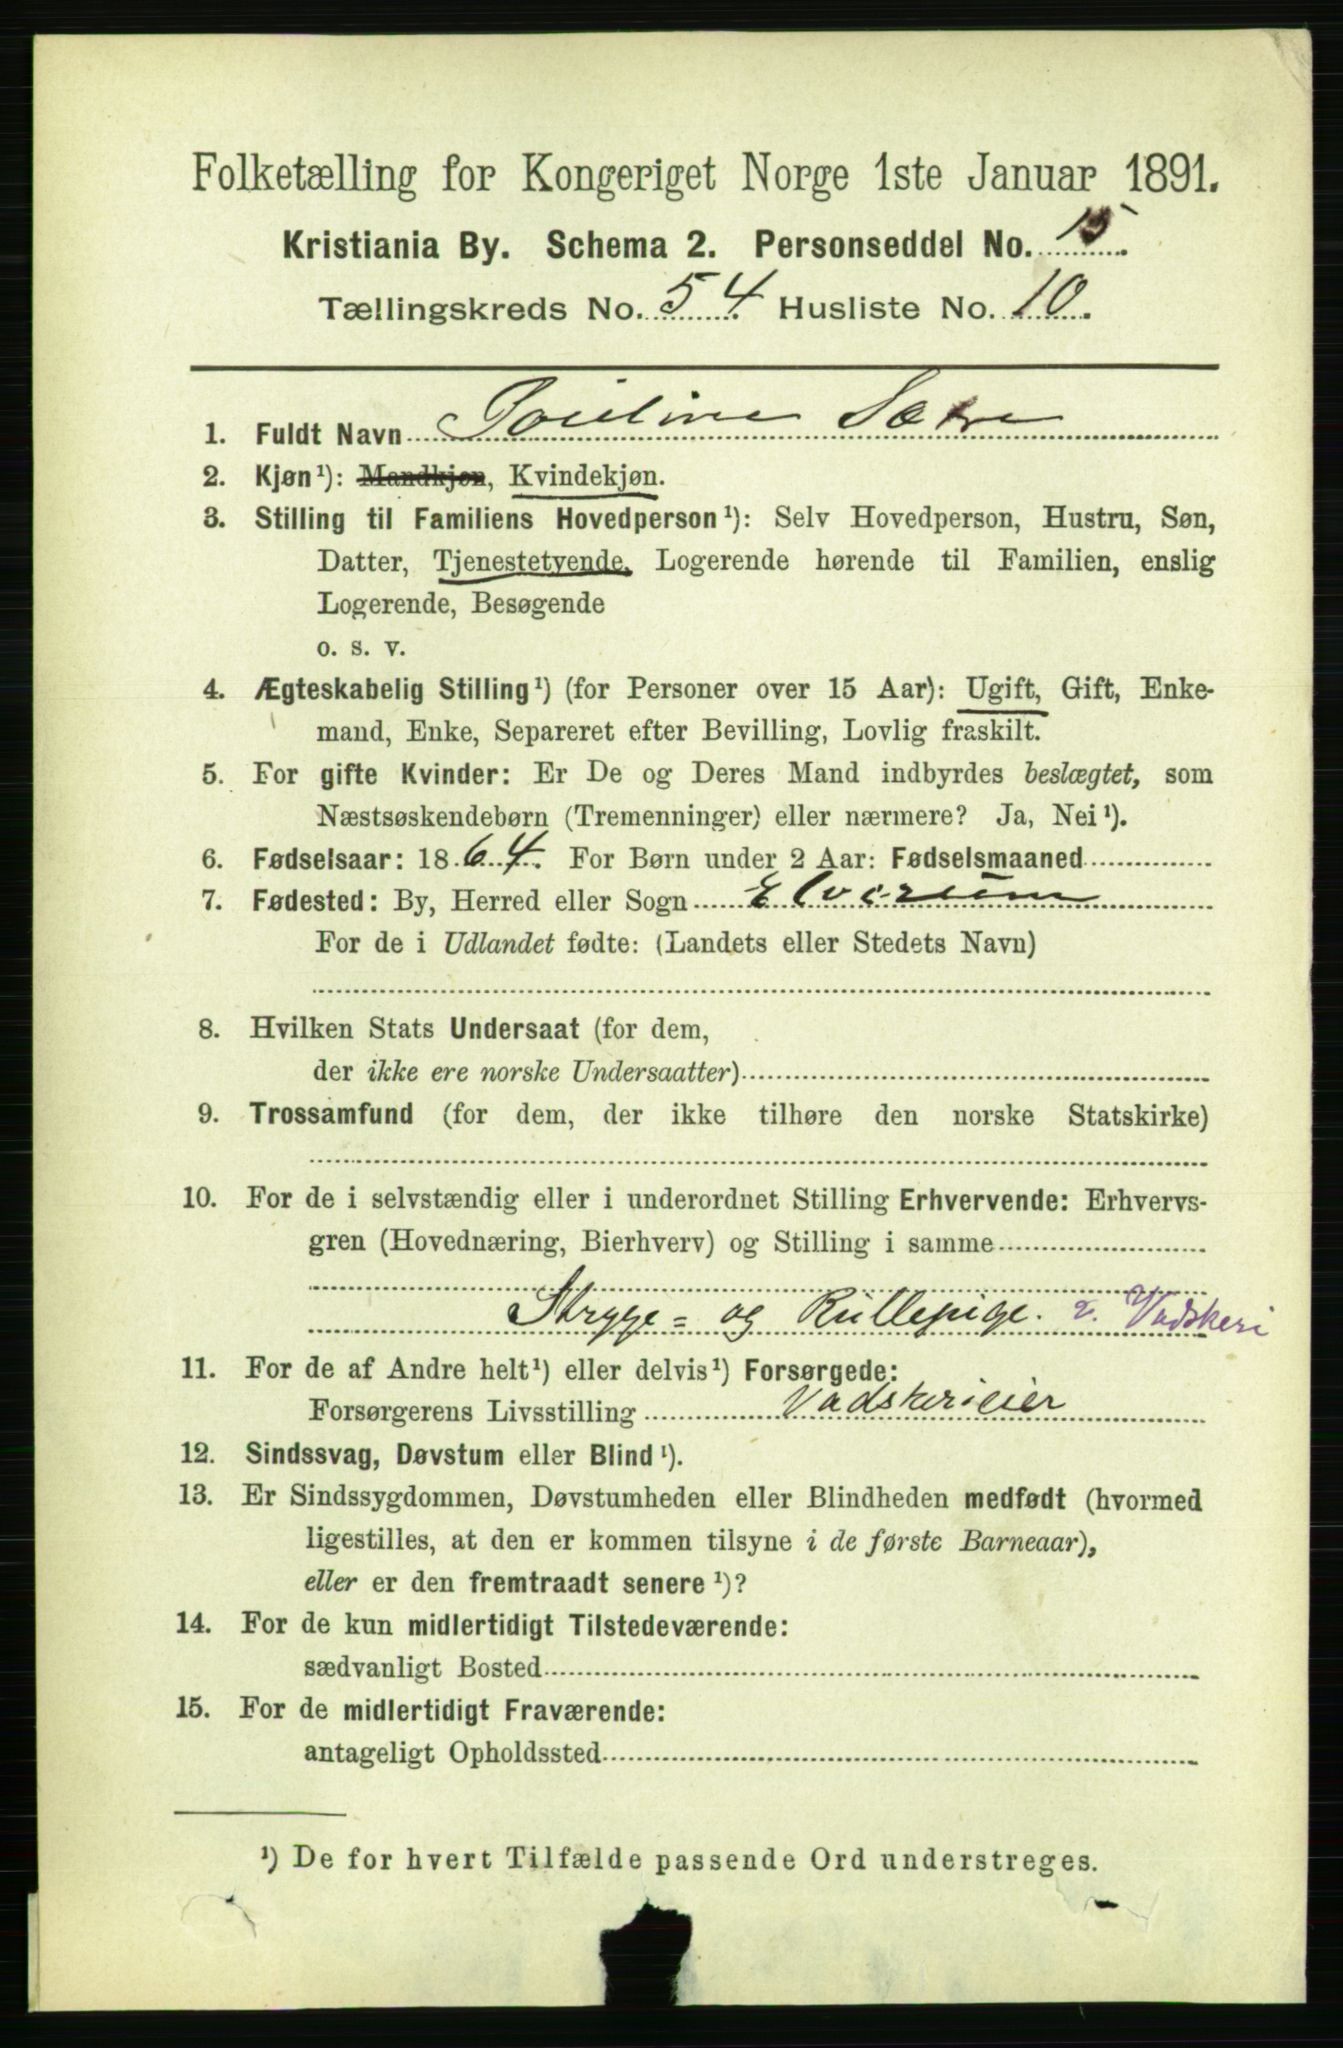 Folketælling for Kongeriget Norge 1ste Januar 1891.
Kristiania By. Schema 2. Personseddel No. 15.
Tællingskreds No. 54. Husliste No. 10.
1. Fuldt Navn Pouline Sætre
2. Kjøn¹): Mandkjøn, Kvindekjøn.
3. Stilling til Familiens Hovedperson¹): Selv Hovedperson, Hustru, Søn,
Datter, Tjenestetyende, Logerende hørende til Familien, enslig
Logerende, Besøgende
o. s. v.
4. Ægteskabelig Stilling¹) (for Personer over 15 Aar): Ugift, Gift, Enke-
mand, Enke, Separeret efter Bevilling, Lovlig fraskilt.
5. For gifte Kvinder: Er De og Deres Mand indbyrdes beslægtet, som
Næstsøskendebørn (Tremenninger) eller nærmere? Ja, Nei¹).
6. Fødselsaar: 1864. For Børn under 2 Aar: Fødselsmaaned
7. Fødested: By, Herred eller Sogn Elverum
For de i Udlandet fødte: (Landets eller Stedets Navn)
8. Hvilken Stats Undersaat (for dem,
der ikke ere norske Undersaatter)
9. Trossamfund (for dem, der ikke tilhøre den norske Statskirke)
10. For de i selvstændig eller i underordnet Stilling Erhvervende: Erhvervs-
gren (Hovednæring, Bierhverv) og Stilling i samme
Stryge= og Rullepige. v. Vadskeri
11. For de af Andre helt¹) eller delvis¹) Forsørgede:
Forsørgerens Livsstilling Vadskerieier
12. Sindssvag, Døvstum eller Blind¹).
13. Er Sindssygdommen, Døvstumheden eller Blindheden medfødt (hvormed
ligestilles, at den er kommen tilsyne i de første Barneaar),
eller er den fremtraadt senere¹)?
14. For de kun midlertidigt Tilstedeværende:
sædvanligt Bosted
15. For de midlertidigt Fraværende:
antageligt Opholdssted
¹) De for hvert Tilfælde passende Ord understreges.